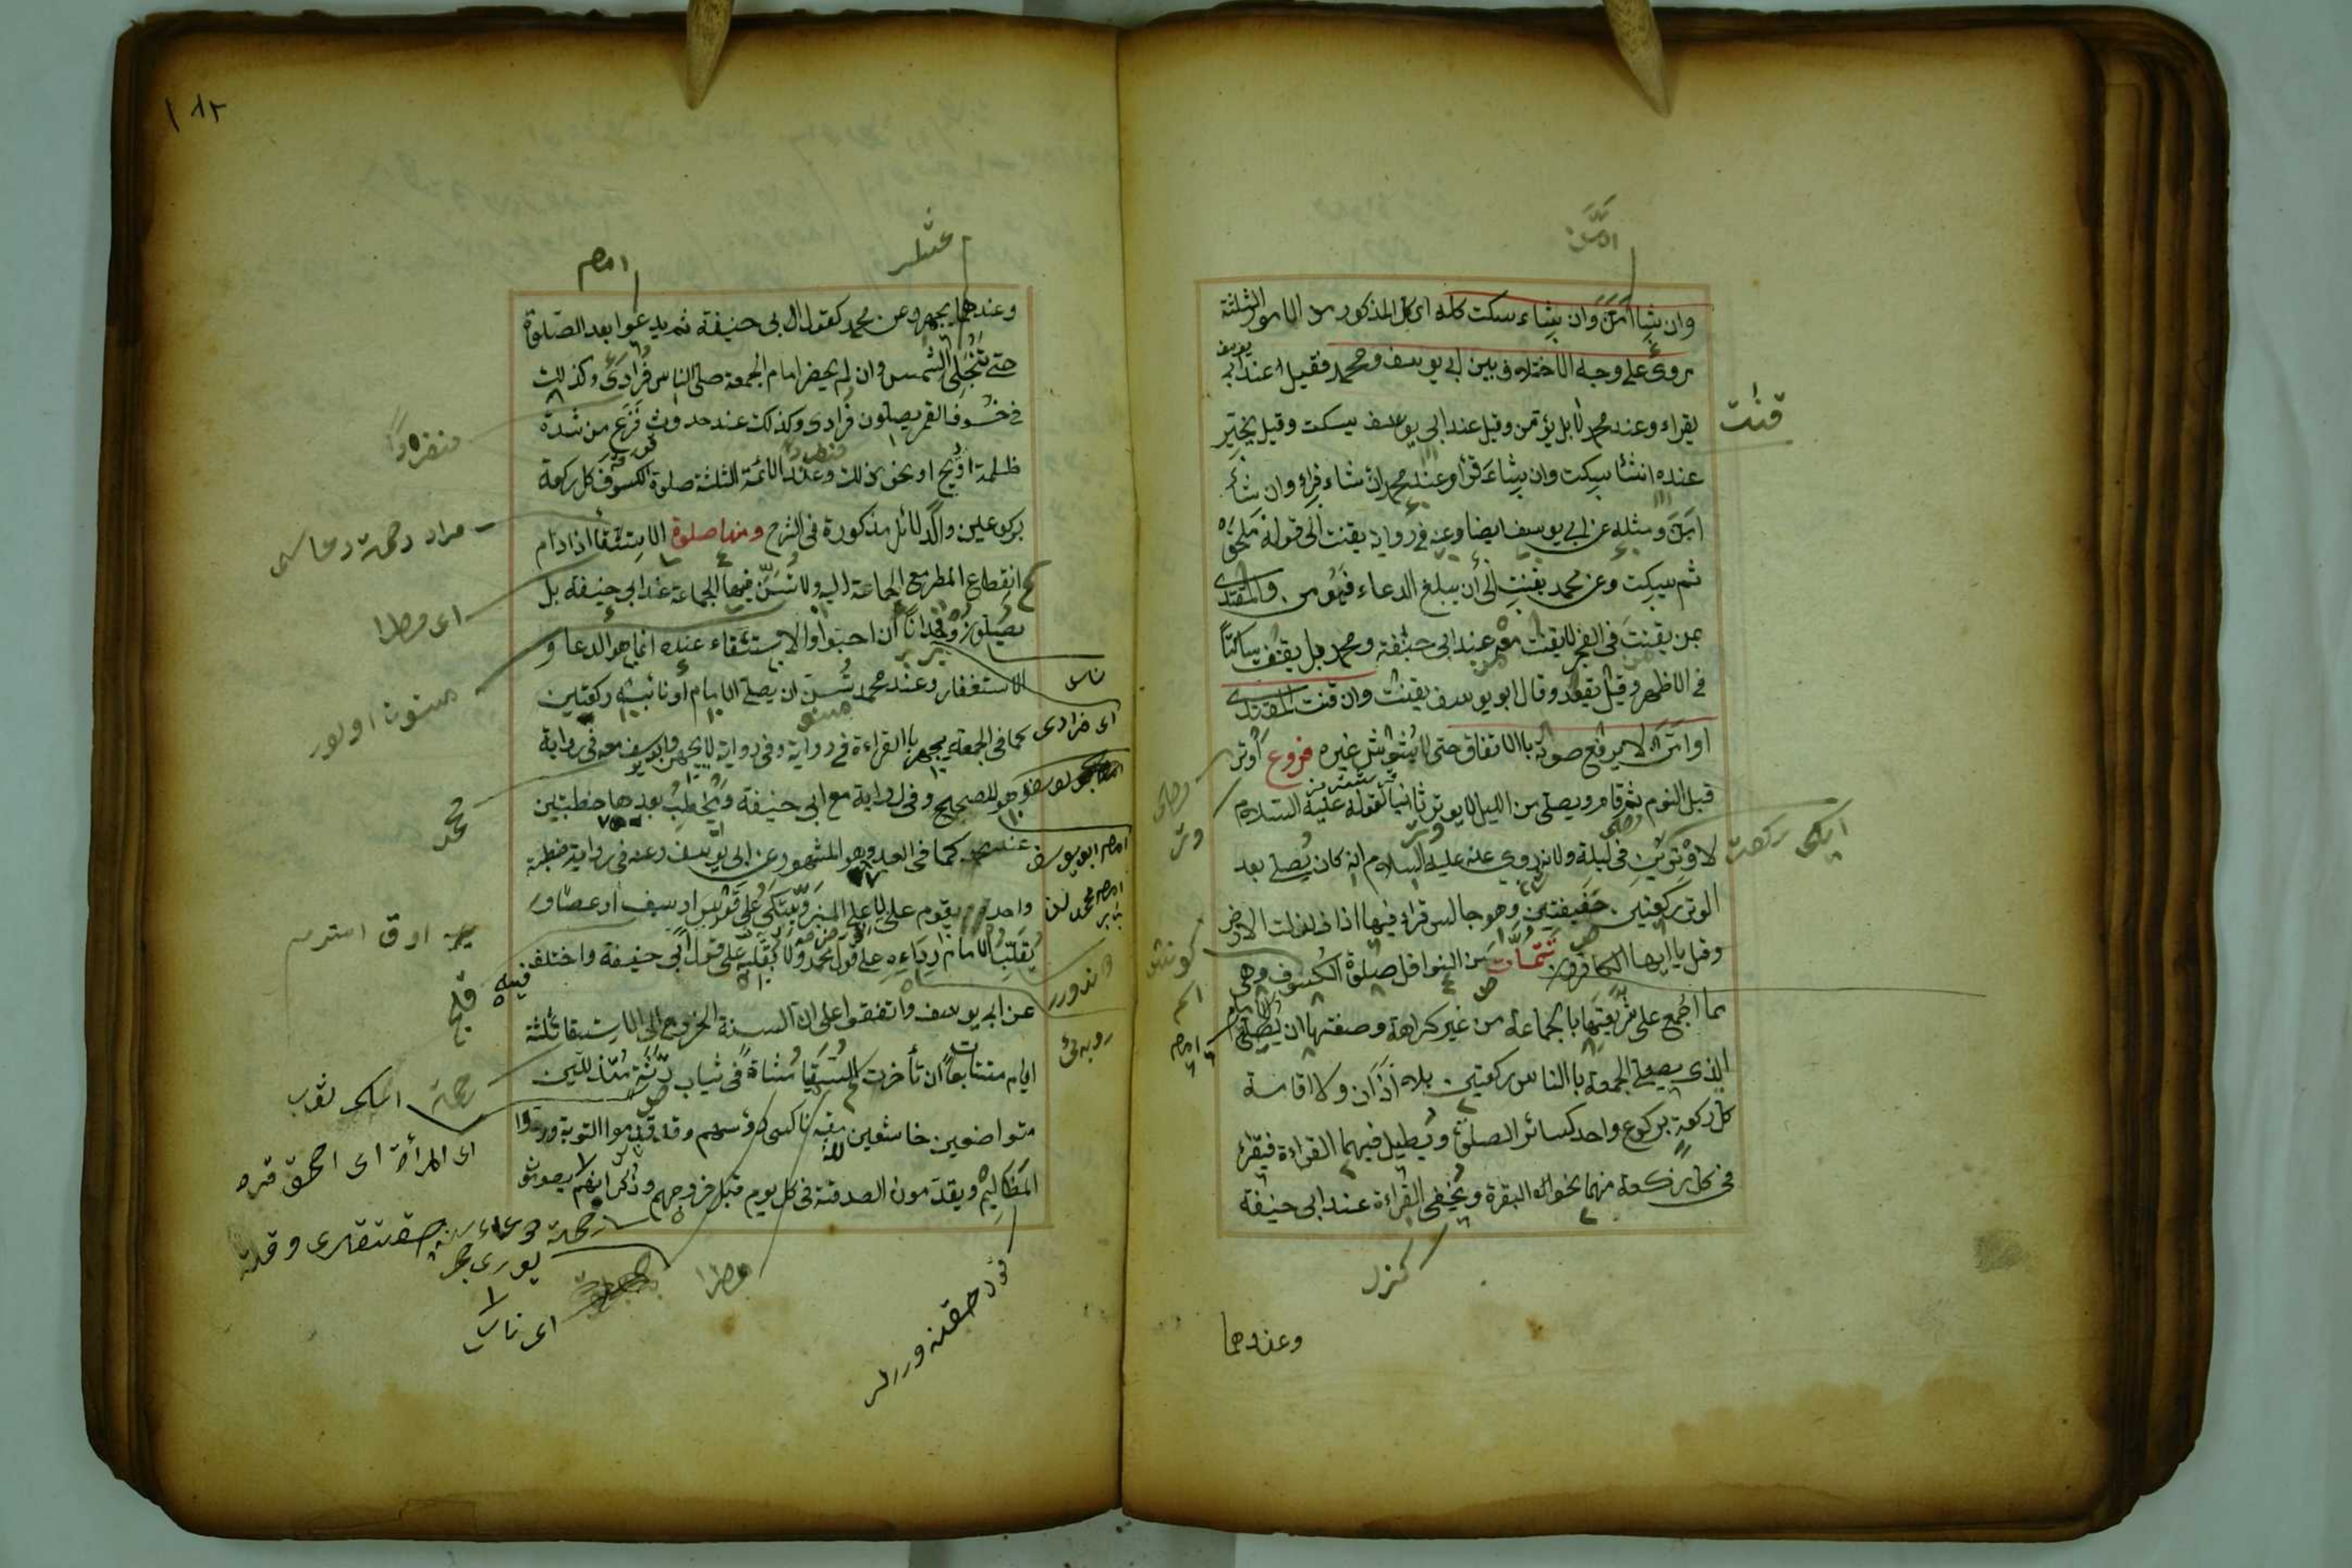 وان شاء امّن وان شاء سكت كله اى كل المذكور من الامور الثلثة
مروىّ على وجه الاختلاف بين ابى يوسف ومحمد فقيل عند ابى يوسف
يقراء وعند محمد لا بل يؤمن وقيل عند ابى يوسف يسكت وقيل يخيّر
عنده ان شاء سكت وان شاء قرأ وعند محمد ان شاء قراء وان شاء
امّن ومثله عن ابى يوسف ايضا وعنه فى رواية يقنت الى قوله ملحق
ثم سكت وعن محمد يقنت الى ان يبلغ الدعاء فيؤمن والمقتدى
بمن يقنت فى الفجر لا يقنت معه عند ابى حنيفة ومحمد بل يقف ساكتا
فى الاظهر وقيل يقعد وقال ابو يوسف يقنت وان قنت المقتدى
او امّن لا يرفع صوته باالاتفاق حتى لا يشوش غيره فروع اوتر
قبل النوم ثم قام ويصلى من الليل لا يوتر ثانيا لقوله عليه السلام
لا وترين فى ليلة ولانه روى عنه عليه السلام انه كان يصلى بعد
الوتر ركعتين خفيفتين وهو جالس قراء فيها اذا زلزلت الارض
وقل يا ايها الكافرون تتمات من النوافل صلوة الكسوف وهى
مما اجمع على شرعيتها بالجماعة من غير كراهة وصفتها ان يصلى الامام
الذى يصلى الجمعة باالناس ركعتين بلا اذان ولا اقامة
كل ركعة بركوع واحد كسائر الصلوة ويطيل فيهما القراءة فيقرء
فى كل ركعة منهما نحو البقرة ويخفى القراءة عند ابى حنيفة
وعندهما
قنت
ايكى ركعت
كزلر
١٨٢
امام
وعندهما يجهر وعن محمد كقول ابى حنيفة ثم يدعوا بعد الصلوة
حتى تنجلى الشمس وان لم يحضر امام الجمعة صلى الناس فرادى وكذلك
فى خسوف القمر يصلون فرادى وكذلك عند حدوث فزع من شدة
ظلمة او ريح او نحو ذلك وعند الائمة الثلثة صلوة الكسوف كل ركعة
بركوعين والدلائل مذكورة فى الشرح ومنها صلوة الاستسقاء اذا دام
انقطاع المطر مع الحاجة اليه ولا تسنّ فيها الجماعة عند ابى حنيفة بل
يصلون وحدانا ان احبوا والاستسقاء عنده انما هو الدعاء و
الاستغفار وعند محمد سنّ ان يصلى الامام او نائبه ركعتين
كما فى الجمعة يجهر باالقراءة فى رواية وفى رواية لا يجهر وابو يوسف معه فى رواية
وهو الصحيح وفى رواية مع ابى حنيفة ويخطب بعدها خطبتين
عنده كما فى العيد وهو المشهور عن ابى يوسف وعنه فى رواية خطبة
واحدة يقوم على لا على المنبر ويتكى على قوس او سيف او عصا و
يقلب الامام رداءه على قول محمد ولا يقلبه على قول ابى حنيفة واختلف
عن ابى يوسف واتفقوا على ان السنة الخروج الى الاستسقاء ثلثة
ايام متتابعات ان تأخرت السقيا مشاة فى ثياب رثة متذللين
متواضعين خاشعين لله ناكسى رؤسهم وقد قدموا التوبة وردوا
المظاليم ويقدمون الصدقة فى كل يوم قبل خروجهم وذكر انهم يصومون
منفردا
اى مطرا
مسنون اولور
محمد
ناس
اى فرادى
امام ابو يوسف
قلج
اى المرأة اى احمق قره
اى ناس
مطرا